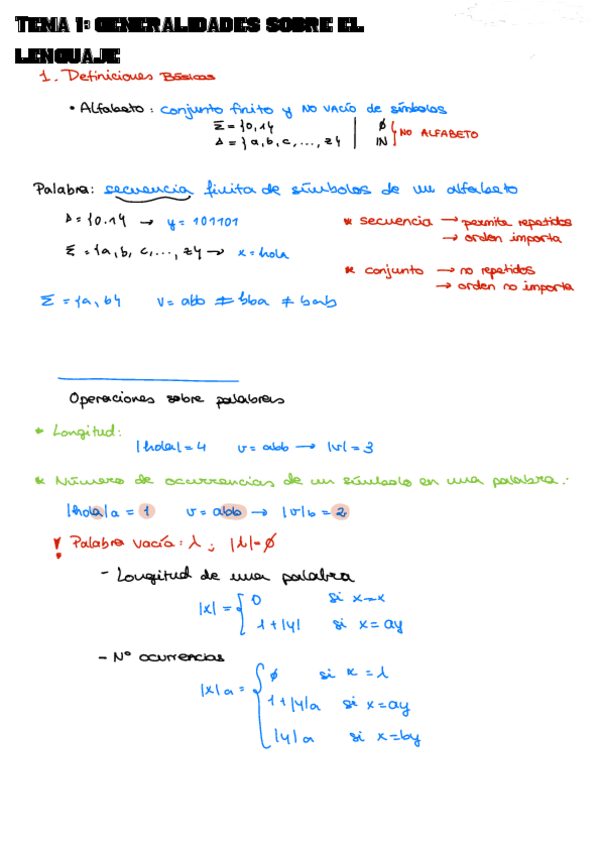 TEMA 1: GENERALIDADES SOBRE EL
LENGUAJE
1. Definiciones Básicas
• Alfabeto: conjunto finito y NO VACÍO de símbolos
Σ = {0,1} | ∅
Δ = {a,b,c,...,z} | IN ] NO ALFABETO
Palabra: secuencia finita de símbolos de un alfabeto
Δ = {0.1} → y = 101101
* secuencia → permite repetidos
→ orden importa
Σ = {a,b,c,...,z} → x = hola
* conjunto → no repetidos
→ orden no importa
Σ = {a,b} v = abb ≠ bba ≠ bab
Operaciones sobre palabras
* Longitud:
|hola| = 4 v = abb → |v| = 3
* Número de ocurrencias de un símbolo en una palabra:
|hola|a = 1 v = abb → |v|b = 2
! Palabra vacía: λ ; |λ| = ∅
- Longitud de una palabra
|x| = { 0 si x = x
1 + |y| si x = ay
- Nº ocurrencias
|x|a = { ∅ si x = λ
1 + |y|a si x = ay
|y|a si x = by